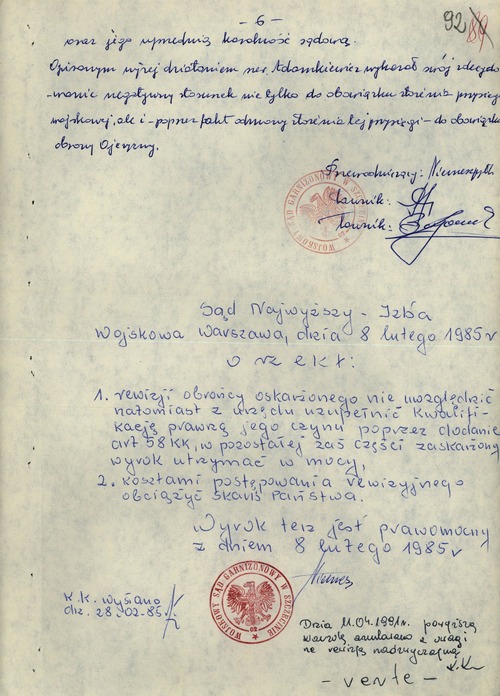 - 6 -
92
oraz jego uprzednią karalność sądową.
Opisanym wyżej działaniem szer. Adamkiewicz wykazał swój zdecydo-
-wanie negatywny stosunek nie tylko do obowiązku złożenia przysięgi
wojskowej, ale i - poprzez fakt odmowy złożenia tej przysięgi - do obowiązku
obrony Ojczyzny.
Przewodniczący:
Ławnik:
Ławnik:
WOJSKOWY SĄD GARNIZONOWY W SZCZECINIE
Sąd Najwyższy - Izba
Wojskowa Warszawa, dnia 8 lutego 1985 r
o r z e k ł :
1. rewizji obrońcy oskarżonego nie uwzględnić
natomiast z urzędu uzupełnić kwalifi-
kację prawną jego czynu poprzez dodanie
art 58 KK, w pozostałej zaś części zaskarżony
wyrok utrzymać w mocy,
2. kosztami postępowania rewizyjnego
obciążyć skarb Państwa.
Wyrok ten jest prawomocny
z dniem 8 lutego 1985 r
WOJSKOWY SĄD GARNIZONOWY W SZCZECINIE
K.K. wysłano
dn. 28-02-85 r.
Dnia 11.04.1991r. powyższą
wzwukę anulowano z uwagi
na rewizję nadzwyczajną
- verte -